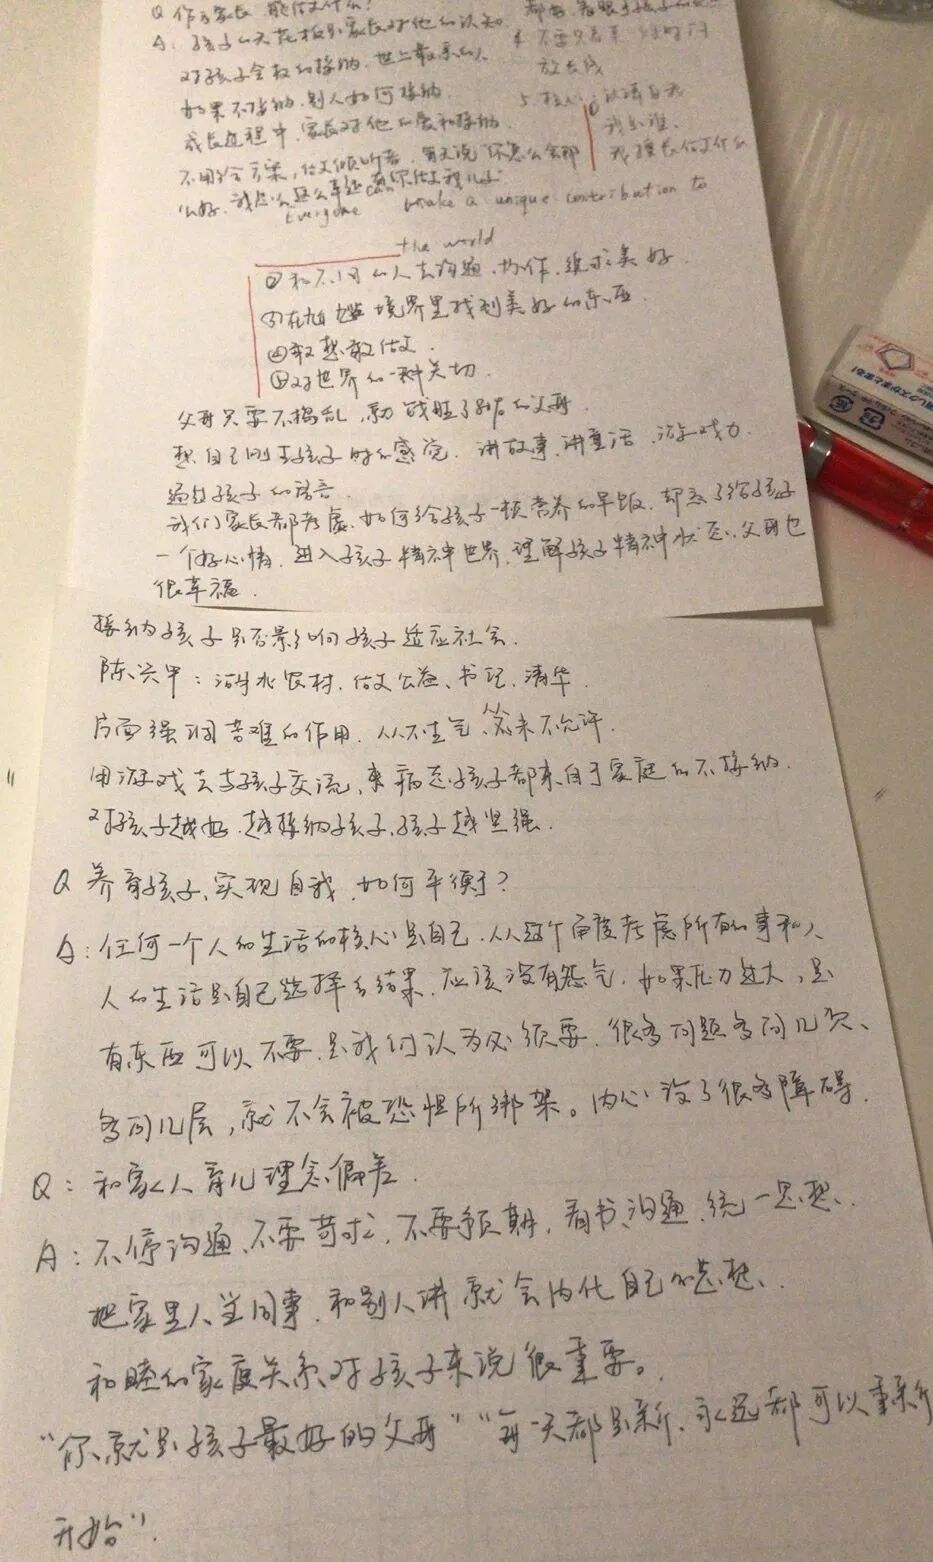 Q 作为家长 能做什么?
A: 孩子的天花板是家长对他的认知
对孩子全数的接纳,世上最亲的人
如果不接纳,别人如何接纳.
成长过程中,家长对他的爱和接纳.
不用给方案,做倾听者,每天说"你怎么会那
么好,我怎么这么幸运有你做我儿子"
Everyone can make a unique contribution to
the world
4 不要只看
放长线
5. 认清自我
我是谁.
我擅长做什么
②和不同的人去沟通、协作、追求美好.
③在尴尬境界里找到美好的东西.
④敢想敢做.
⑤对世界的一种关切.
父母只要不捣乱,就战胜了别的父母.
想自己刚生孩子时的感觉,讲故事,讲童话,游戏力.
通过孩子的语言.
我们家长都考虑,如何给孩子一顿营养的早饭,却忘了给孩子
一个好心情,进入孩子精神世界,理解孩子精神状态,父母也
很幸福.
接纳孩子是否影响孩子适应社会.
陈兴甲:农村,做公益、书记、清华.
片面强调苦难的作用,从不生气、从来不允许.
用游戏去与孩子交流,病态孩子都来自于家庭的不接纳.
对孩子越好,越接纳孩子,孩子越坚强.
Q 养育孩子,实现自我,如何平衡?
A: 任何一个人的生活的核心是自己,从这个角度考虑所有的事和人
人的生活是自己选择的结果,应该没有怨气,如果压力过大,是
有东西可以不要,是我们认为必须要,很多问题多问几次、
多问几层,就不会被恐惧所绑架。内心设了很多障碍.
Q: 和家人育儿理念偏差.
A: 不停沟通、不要苛求,不要预期,看书、沟通、统一思想.
把家里人当同事,和别人讲就会内化自己的思想.
和睦的家庭关系对孩子来说很重要。
"你就是孩子最好的父母" "每一天都是新,永远都可以重新
开始".